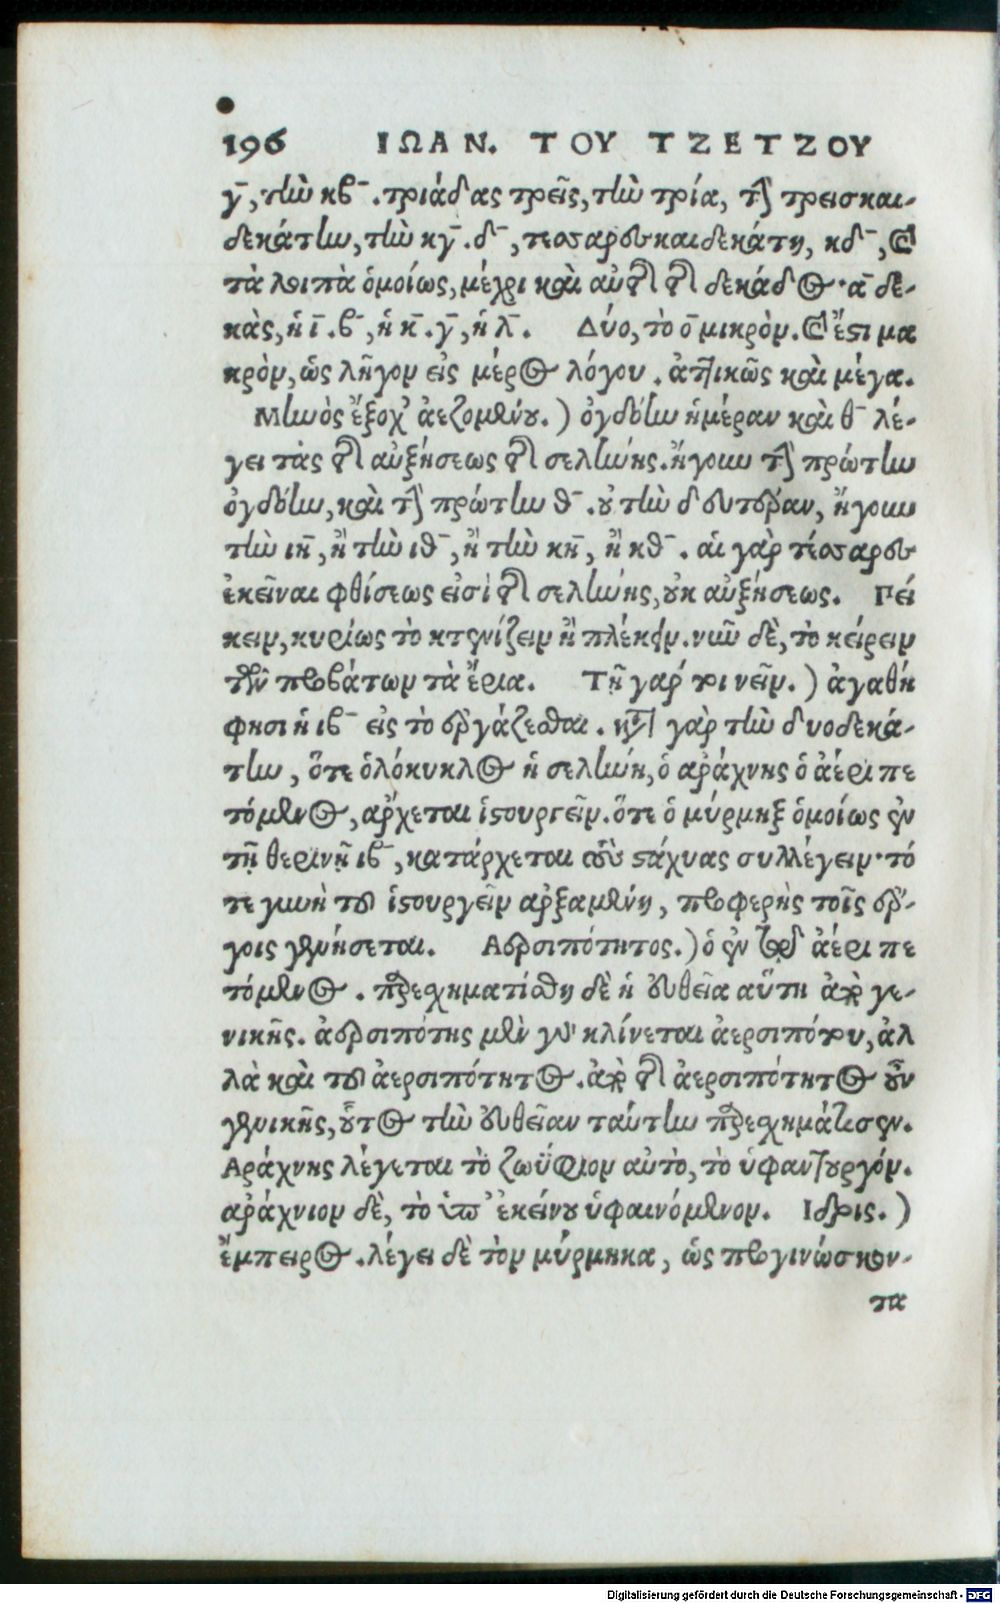 196 ΙΩΑΝ. ΤΟΥ ΤΖΕΤΖΟΥ
γ̄, τὴν κβ̄. τριάδας τρεῖς, τὴν τρία, τὴν τρεισκαι-
δεκάτην, τὴν κγ̄. δ̄, τεσσαρεσκαιδεκάτη, κδ̄, καὶ
τὰ λοιπὰ ὁμοίως, μέχρι καὶ αὐτῆς τῆς δεκάδος· ᾱ δε-
κὰς, ἡ ῑ. β̄, ἡ κ̄. γ̄, ἡ λ̄. Δύο, τὸ ο̄ μικρὸν. καὶ ἔστι μα
κρὸν, ὡς λῆγον εἰς μέρος λόγου. ἀττικῶς καὶ μέγα.
Μηνὸς ἔξοχ' ἀεζομένου.) ὀγδόην ἡμέραν καὶ θ̄ λέ-
γει τὰς τῆς αὐξήσεως τῆς σελήνης. ἤγουν τὴν πρώτην
ὀγδόην, καὶ τὴν πρώτην θ̄. οὐ τὴν δευτέραν, ἤγουν
τὴν ιη̄, ἢ τὴν ιθ̄, ἢ τὴν κη̄, ἢ κθ̄. αἱ γὰρ τέσσαρες
ἐκεῖναι φθίσεως εἰσὶ τῆς σελήνης, οὐκ αὐξήσεως. Πεί
κειν, κυρίως τὸ κτενίζειν ἢ πλέκειν. νῦν δὲ, τὸ κείρειν
τῶν προβάτων τὰ ἔρια. Τῇ γάρ τοι νεῖν.) ἀγαθή
φησι ἡ ιβ̄ εἰς τὸ ἐργάζεσθαι. κατὰ γὰρ τὴν δυοδεκά-
την, ὅτε ὁλόκυκλος ἡ σελήνη, ὁ αράχνης ὁ ἀέρι πε
τόμενος, αρχεται ἱστουργεῖν. ὅτε ὁ μύρμηξ ὁμοίως ἐν
τῇ θερινῇ ιβ̄, κατάρχεται τοὺς στάχυας συλλέγειν· τό
τε γυνὴ τοῦ ἱστουργεῖν αρξαμένη, προφερὴς τοῖς ἔρ-
γοις γενήσεται. Αερσιπότητος.) ὁ ἐν τῷ ἀέρι πε
τόμενος. παρεσχηματίσθη δὲ ἡ εὐθεῖα αὕτη παρὰ γε-
νικῆς. ἀερσιπότης μὲν γὰρ κλίνεται ἀερσιπότου, ἀλ
λὰ καὶ τοῦ ἀερσιπότητος. ἀπὸ τῆς ἀερσιπότητος οὖν
γενικῆς, οὗτος τὴν εὐθεῖαν ταύτην παρεσχημάτισεν.
Αράχνης λέγεται τὸ ζωΰφιον αὐτὸ, τὸ ὑφαντουργόν.
αράχνιον δὲ, τὸ ὑπ' ἐκείνου ὑφαινόμενον. Ιδρις.)
ἔμπειρος. λέγει δὲ τὸν μύρμηκα, ὡς προγινώσκον-
τα
Digitalisierung gefördert durch die Deutsche Forschungsgemeinschaft - DFG